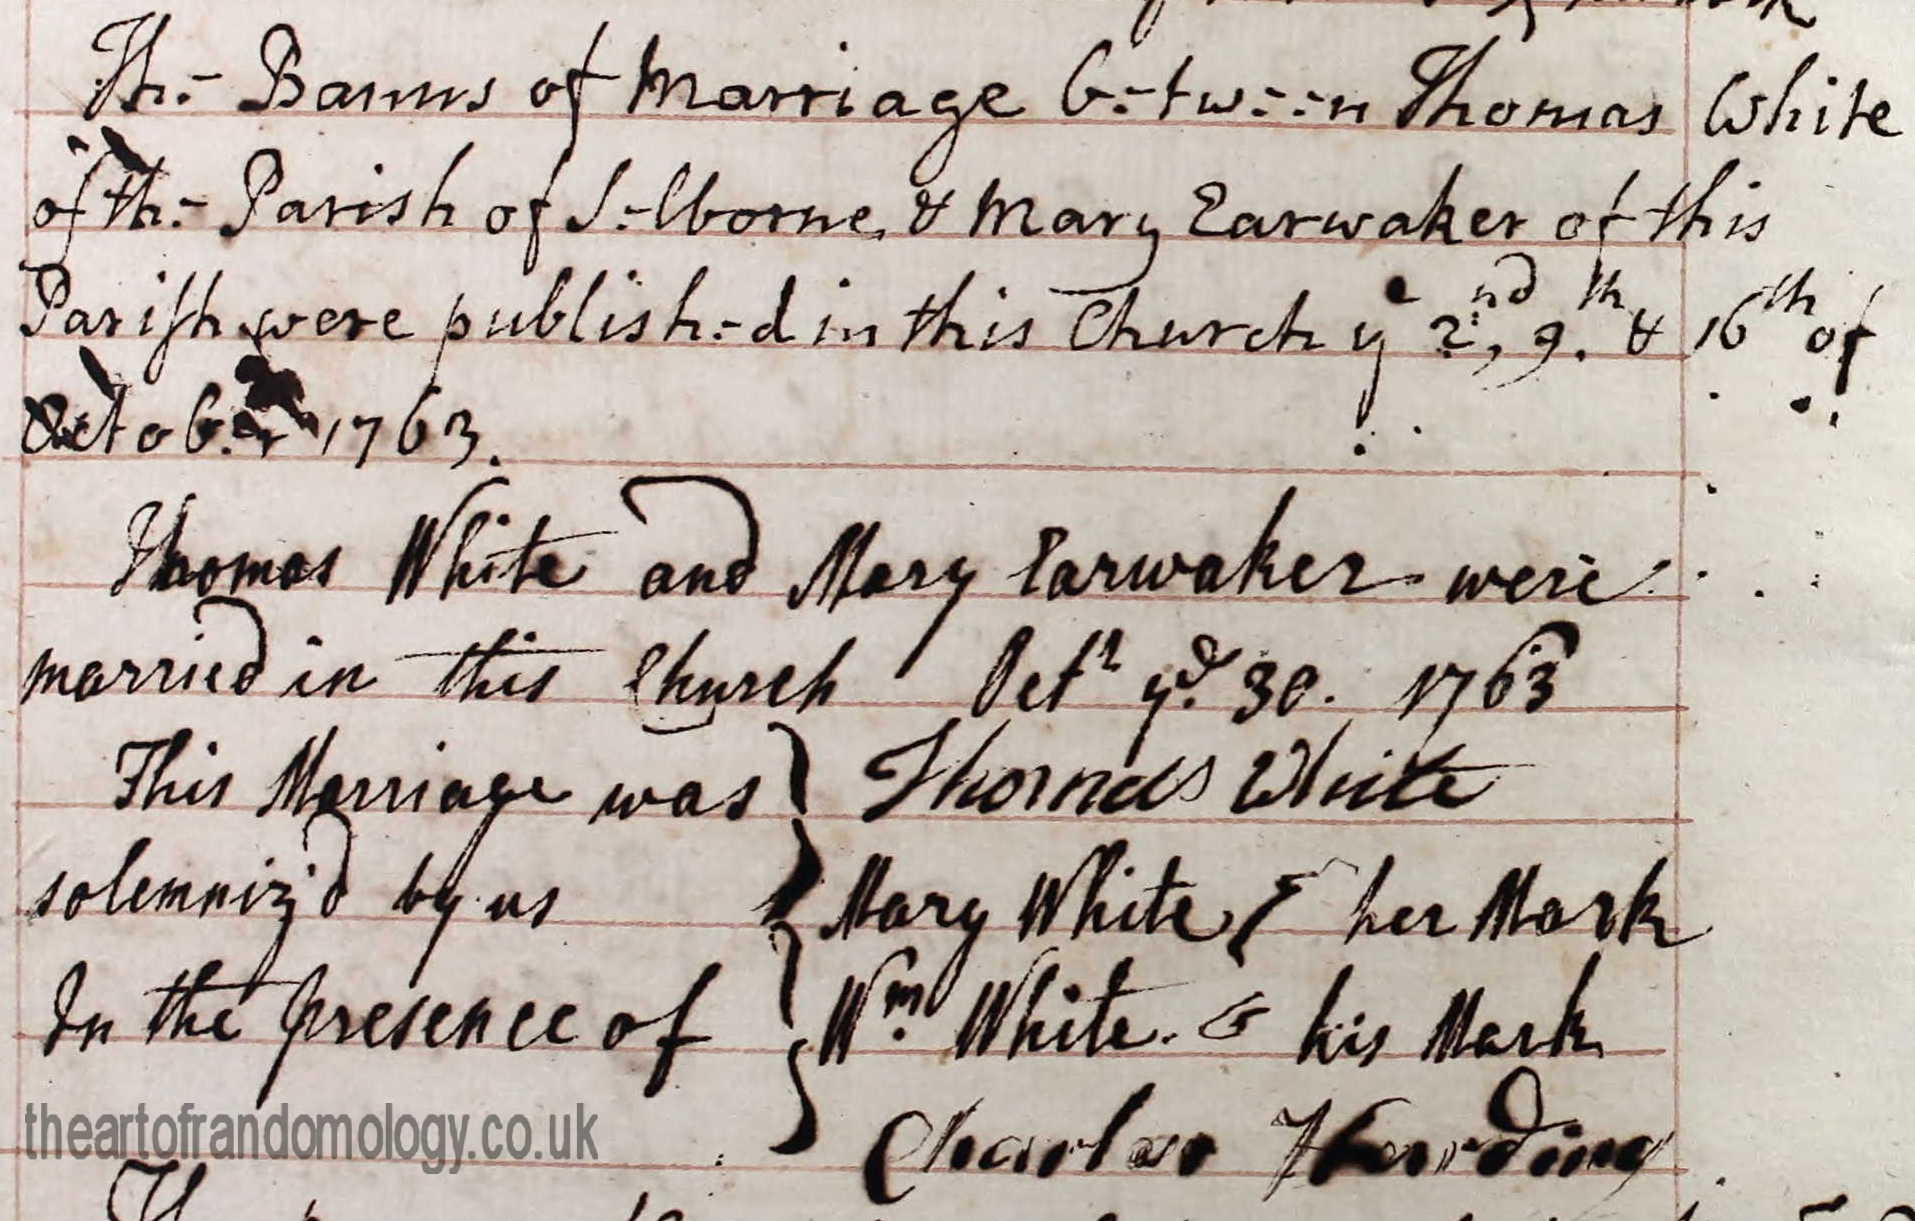 The Banns of Marriage between Thomas White
of the Parish of Selborne, & Mary Earwaker of this
Parish were published in this Church ye 2nd, 9th & 16th of
October 1763.
Thomas White and Mary Earwaker were
married in this Church Octr ye 30. 1763
This Marriage was Thomas White
solemniz'd by us Mary White her Mark
In the presence of Wm White his Mark
Charles Harding
theartofrandomology.co.uk